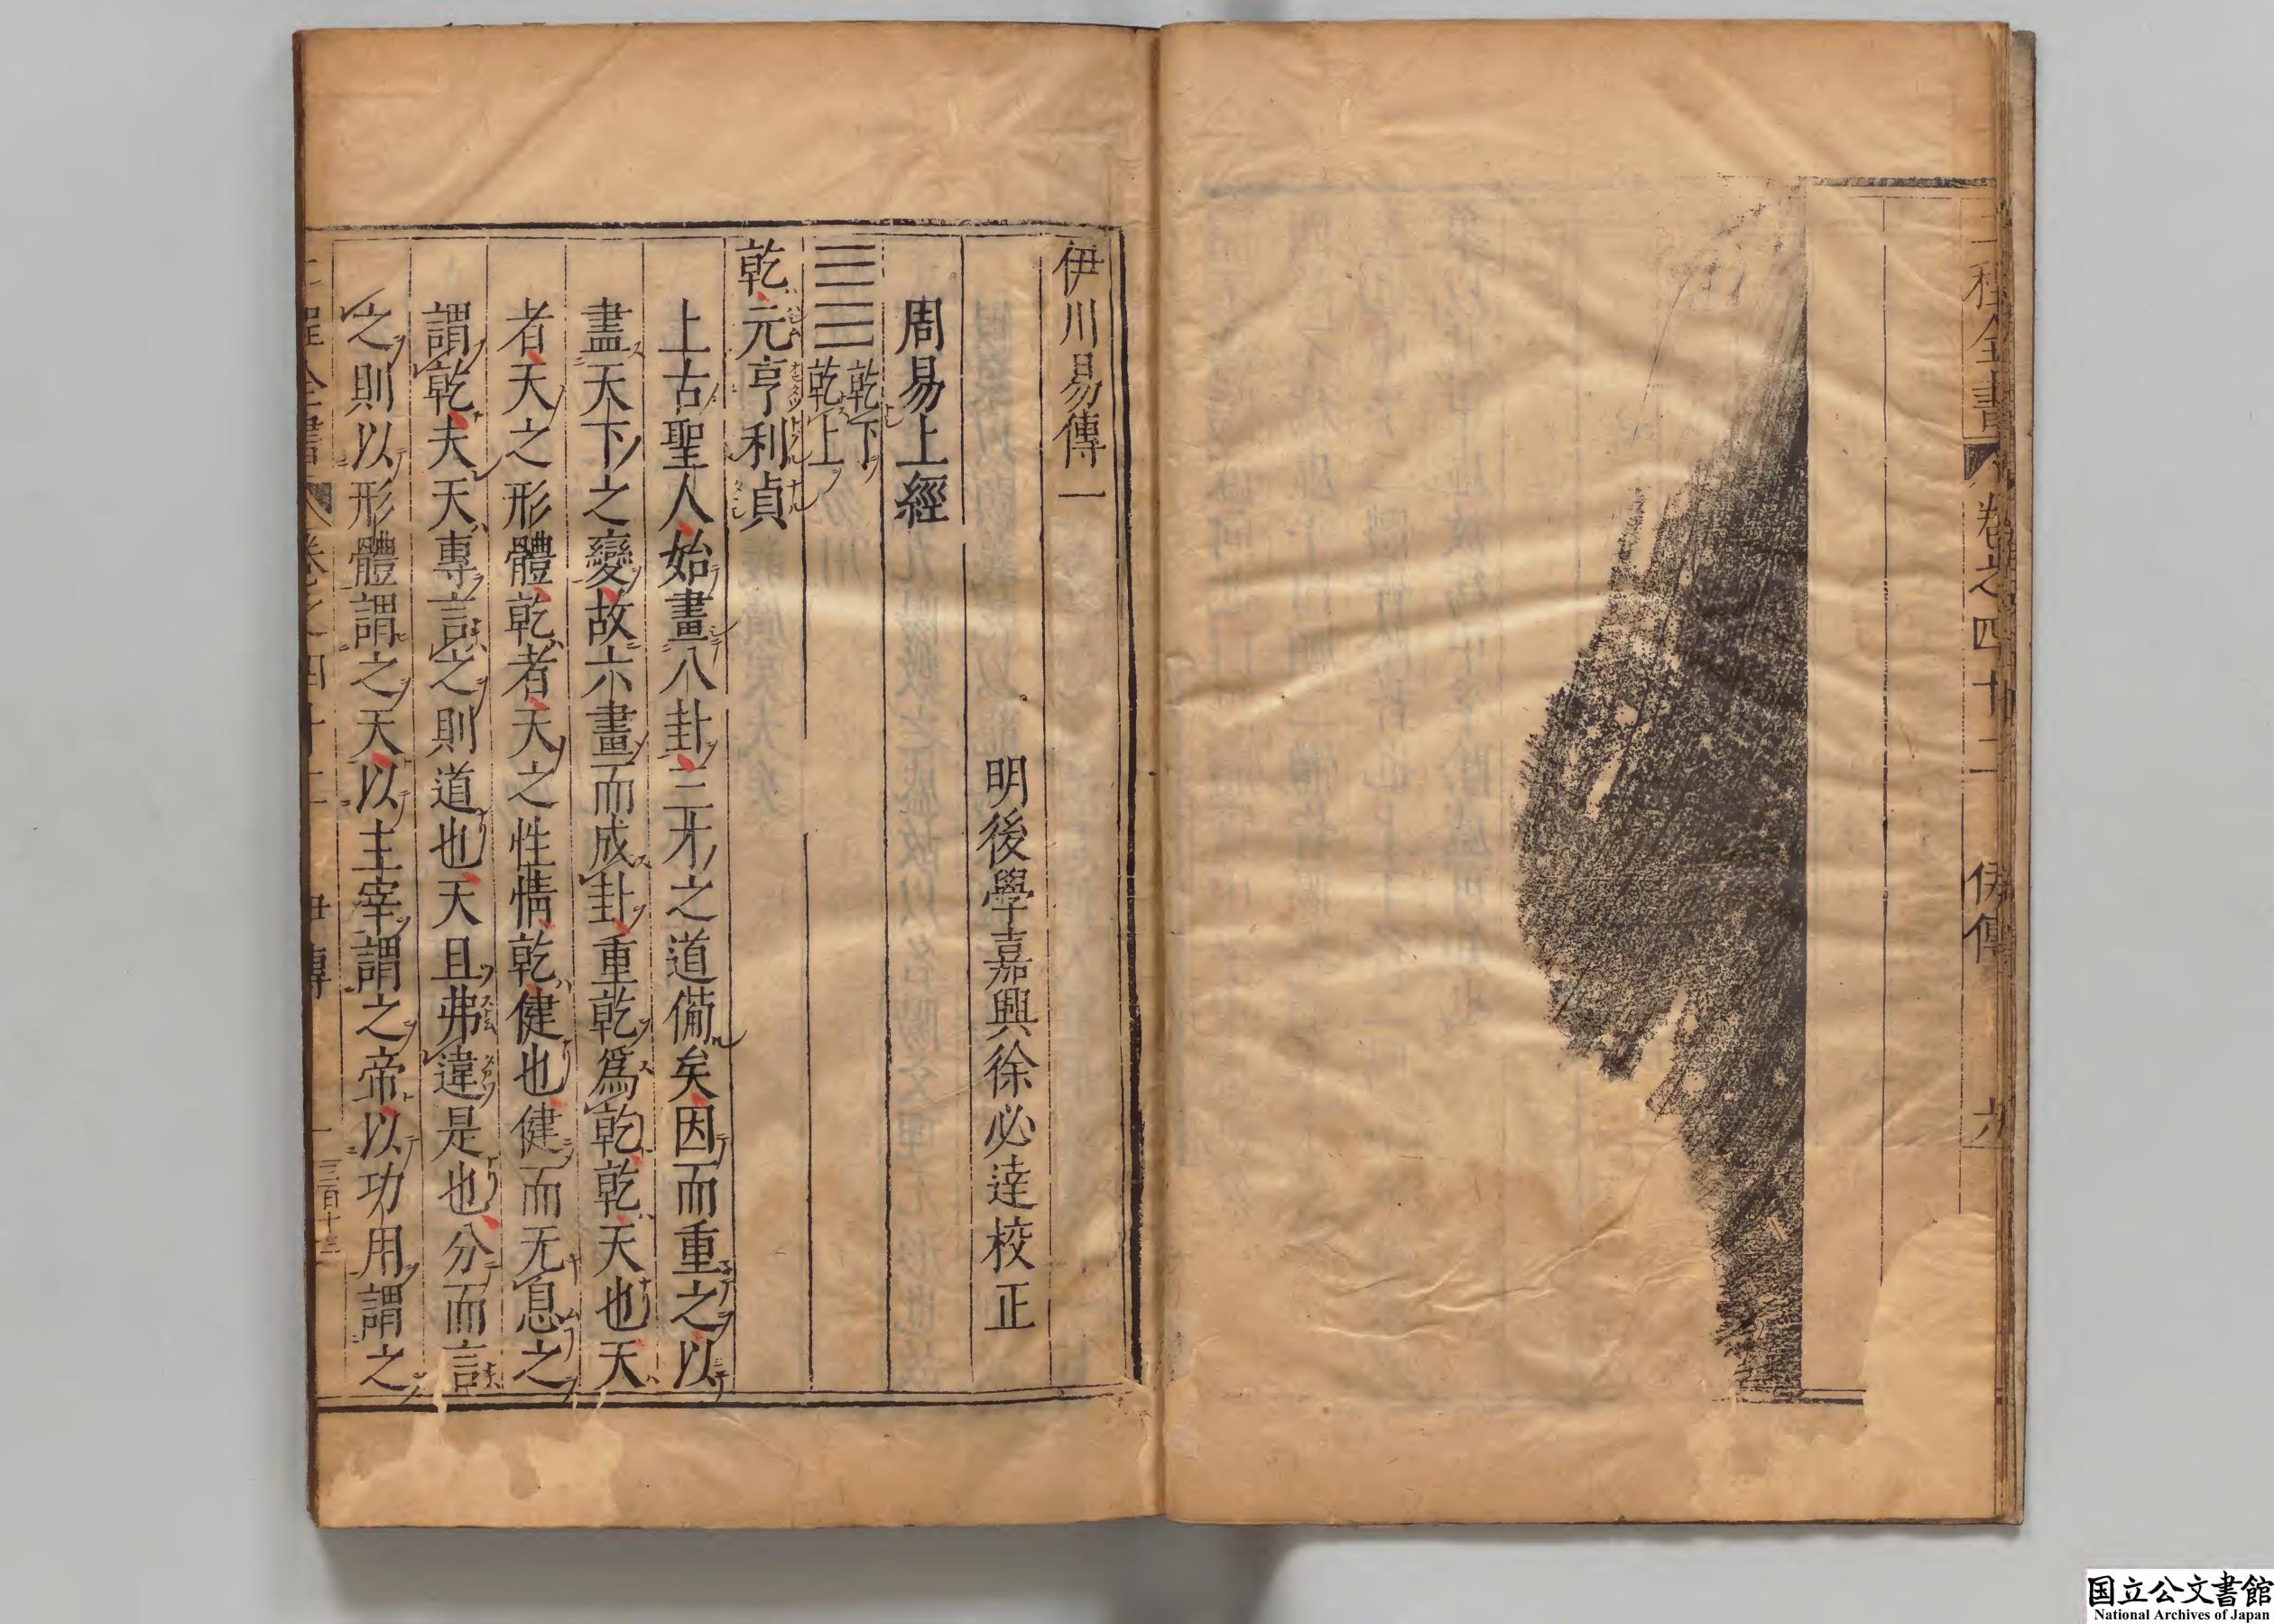 二程全書 卷之四十二 伊傳 九
伊川易傳一
明後學嘉興徐必達校正
周易上經
乾下
乾上
乾元亨利貞
上古聖人始畫八卦三才之道備矣因而重之以
盡天下之變故六畫而成卦重乾爲乾乾天也天
者天之形體乾者天之性情乾健也健而无息之
謂乾夫天專言之則道也天且弗違是也分而言
之則以形體謂之天以主宰謂之帝以功用謂之
二程全書 卷之四十二 伊傳 一 三百十三
国立公文書館
National Archives of Japan